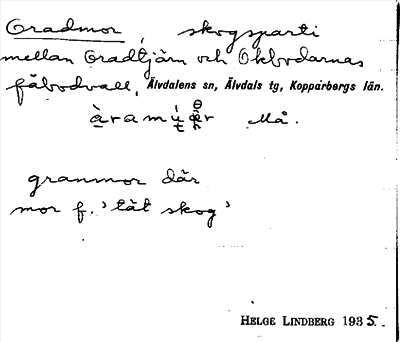 Gradmor, skogsparti
mellan Gradtjärn och Okbodarnas
fäbodvall, Älvdalens sn, Älvdals tg, Kopparbergs län.
Må.
granmor där
mor f. 'tät skog'
HELGE LINDBERG 1935.